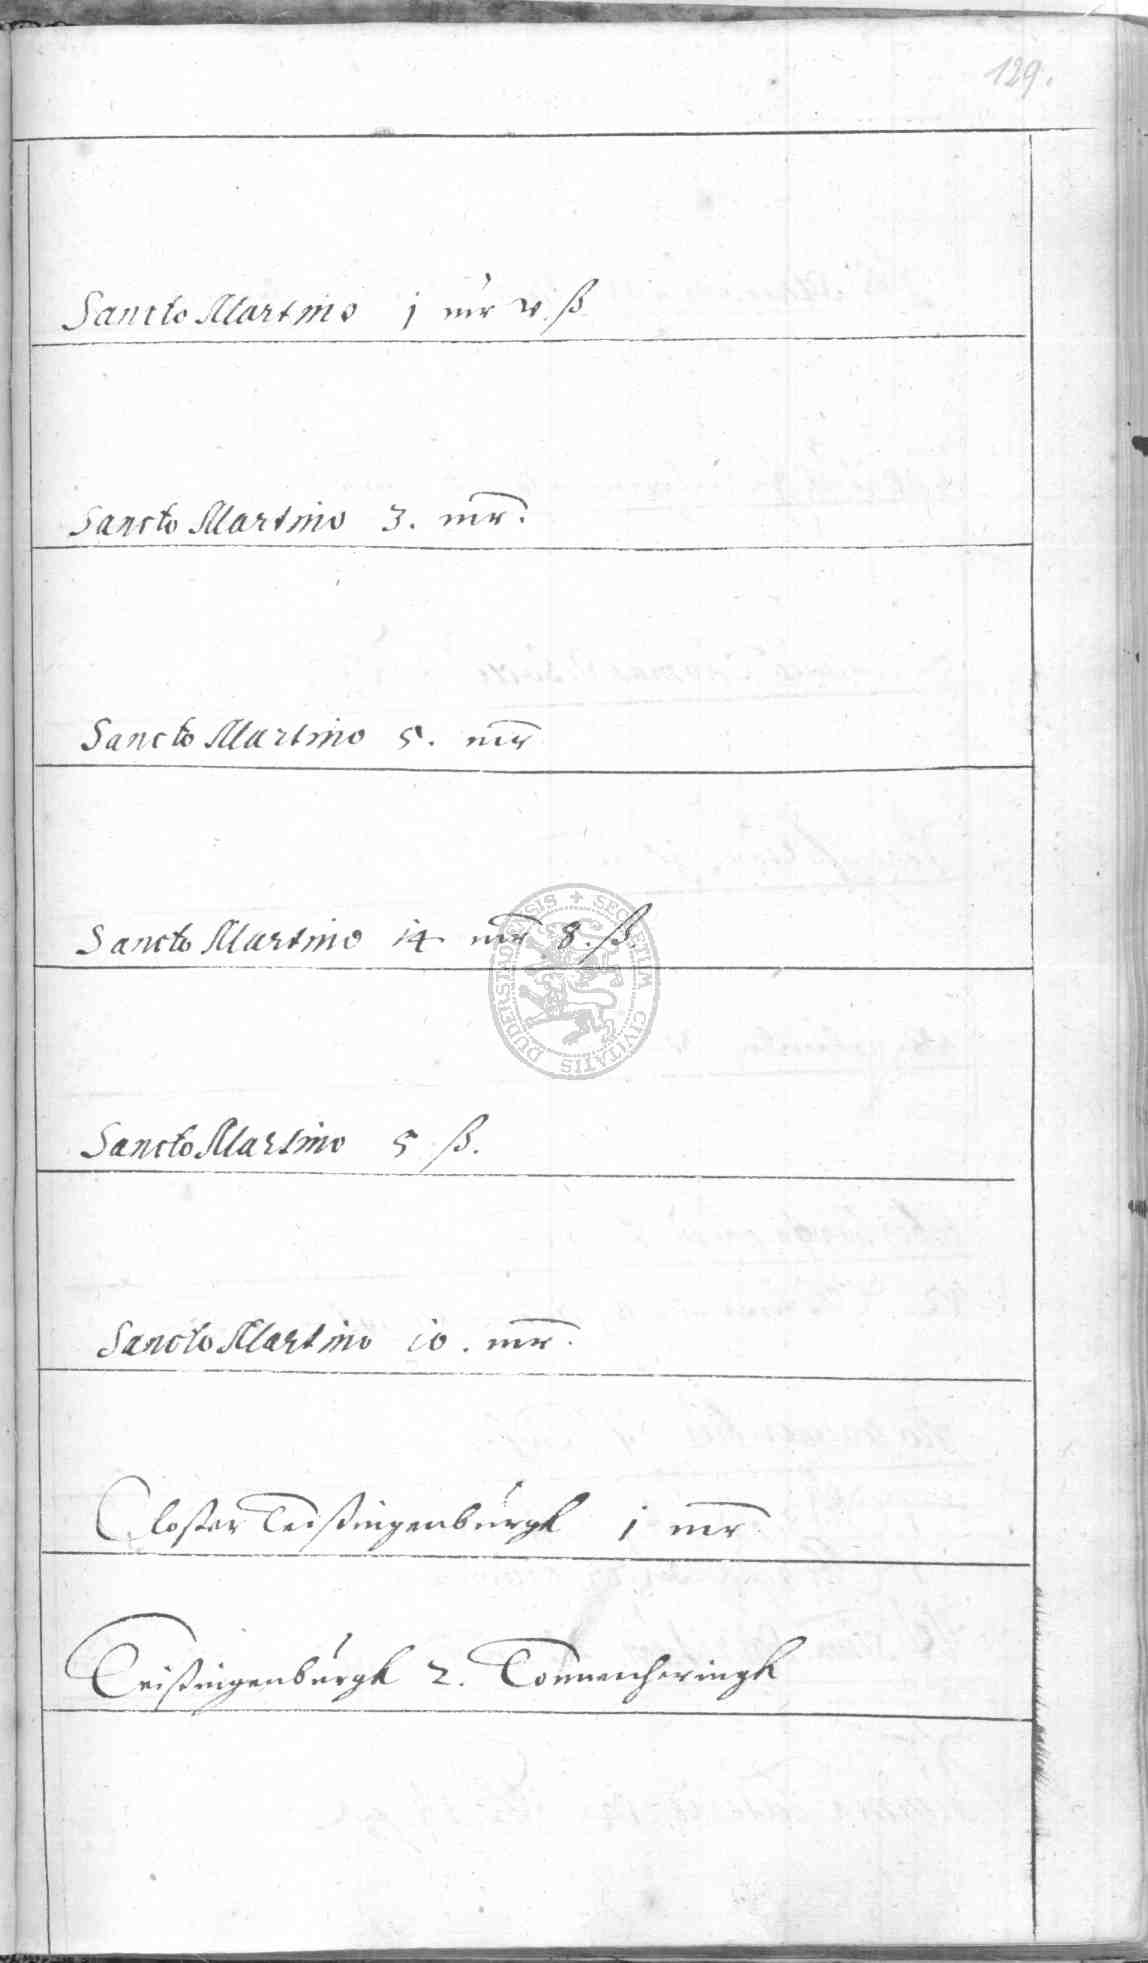 129.
Sancto Martino 1 mr v ß
Sancto Martino 3. mr.
Sancto Martino 5. mr
Sancto Martino 14 mr 8. ß.
SECRETUM CIVITATIS DUDERSTADENSIS
Sancto Martino 5 ß.
Sancto Martino 10. mr.
Closter Teistingenburgk 1 mr
Teistingenburgk 2. Tonnen heringk